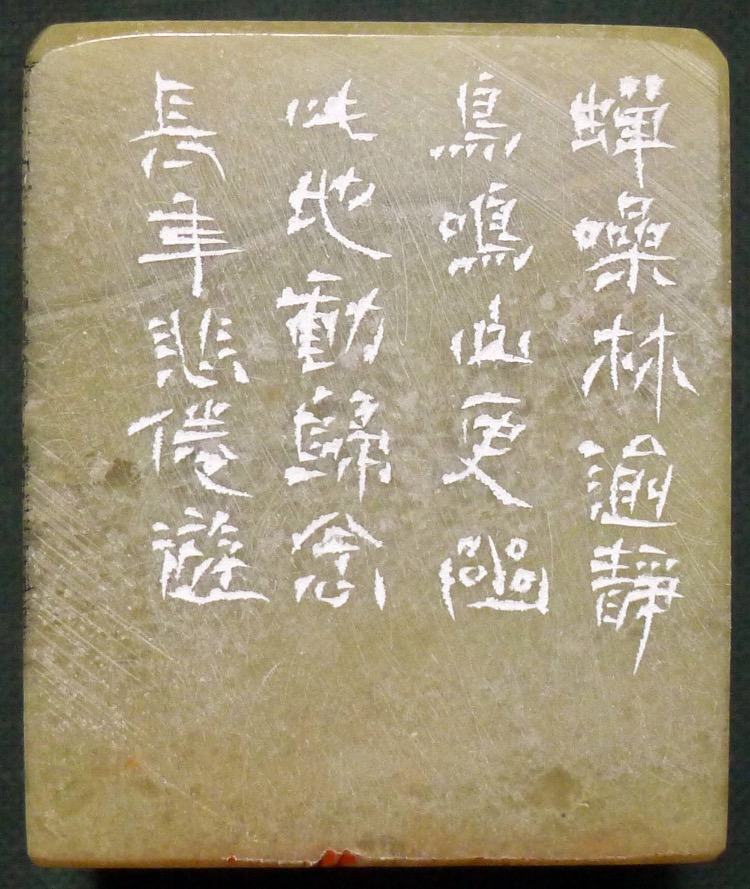 蟬噪林逾靜
鳥鳴山更幽
此地動歸念
長年悲倦遊